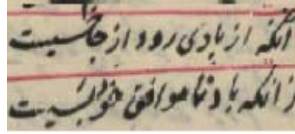 آنکه از بادی رود از جا خسیست
زانکه باد ناموافق خود بسیست